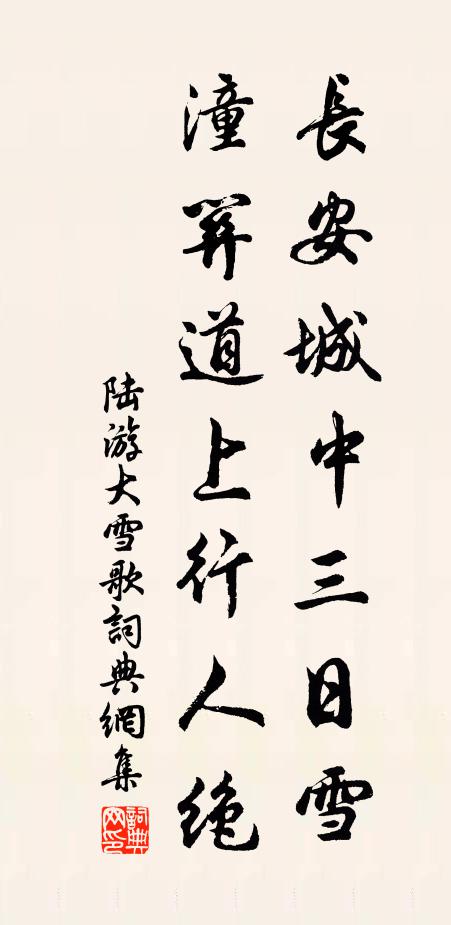 長安城中三日雪
潼關道上行人絶
陸游大雪歌詞典網集
詞典網印